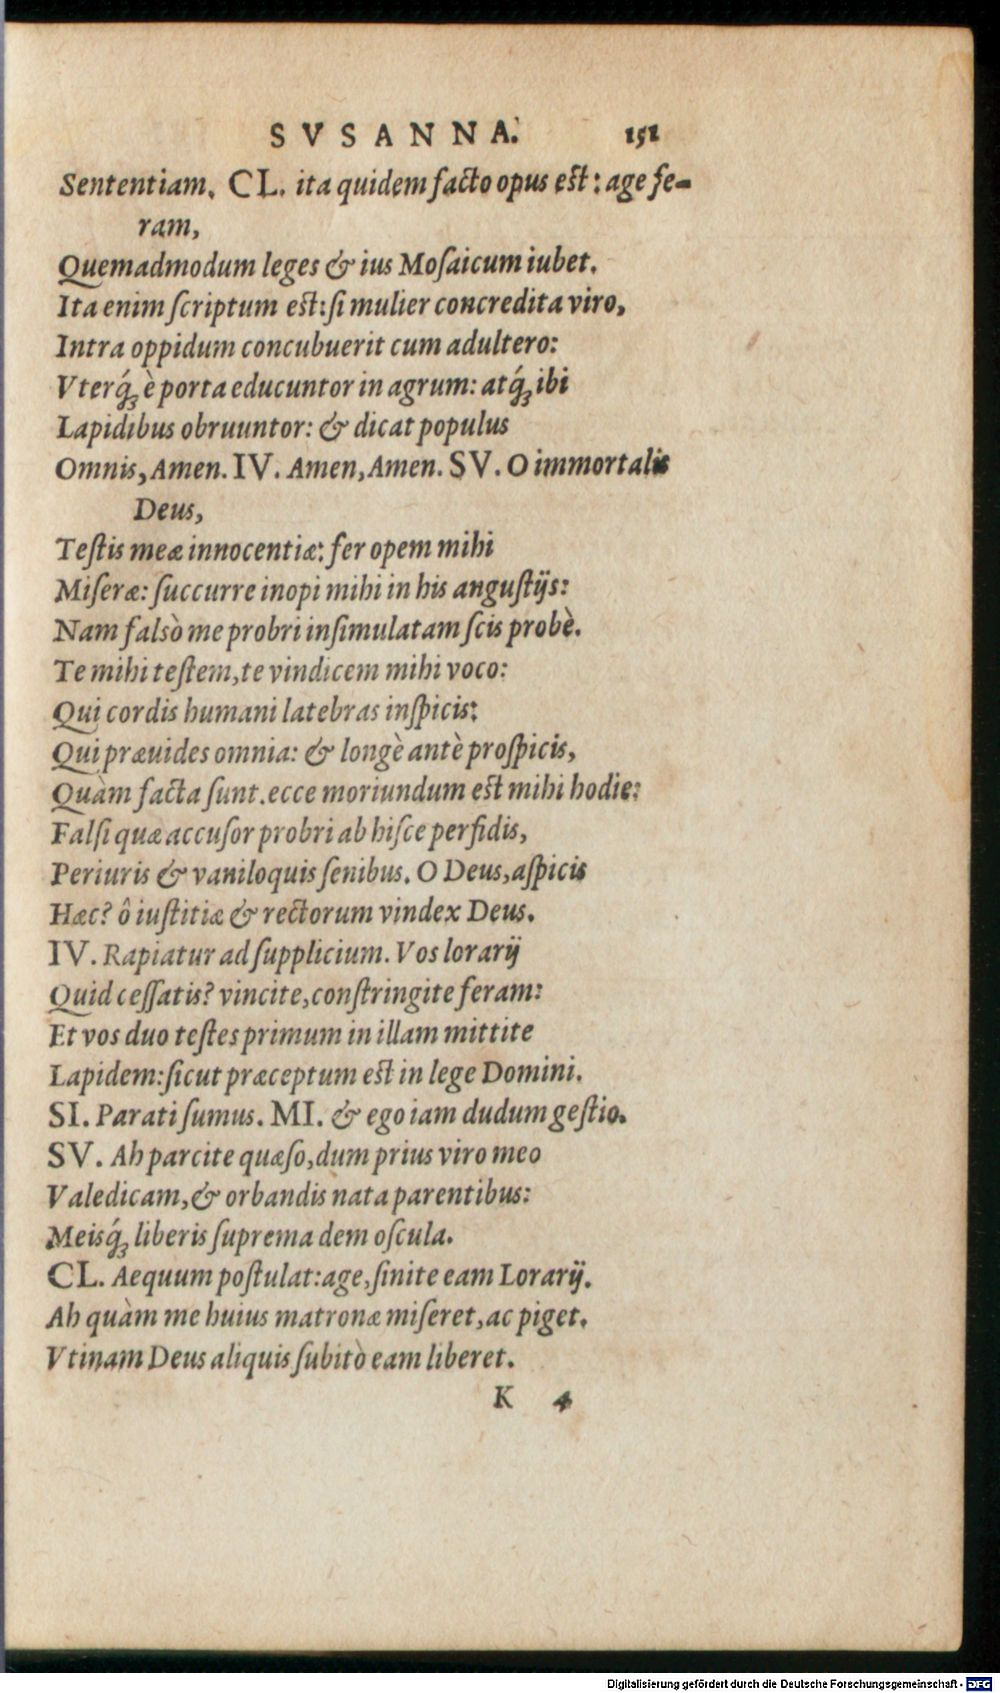 SVSANNA. 151
Sententiam. CL. ita quidem facto opus eſt: age fe-
ram,
Quemadmodum leges & ius Moſaicum iubet.
Ita enim ſcriptum eſt: ſi mulier concredita viro,
Intra oppidum concubuerit cum adultero:
Vterq́ꝫ è porta educuntor in agrum: atq́ꝫ ibi
Lapidibus obruuntor: & dicat populus
Omnis, Amen. IV. Amen, Amen. SV. O immortalis
Deus,
Teſtis meæ innocentiæ: fer opem mihi
Miſeræ: ſuccurre inopi mihi in his anguſtijs:
Nam falsò me probri inſimulatam ſcis probè.
Te mihi teſtem, te vindicem mihi voco:
Qui cordis humani latebras inſpicis:
Qui præuides omnia: & longè antè proſpicis,
Quàm facta ſunt. ecce moriundum eſt mihi hodie:
Falſi quæ accuſor probri ab hiſce perfidis,
Periuris & vaniloquis ſenibus. O Deus, aſpicis
Hæc? ô iuſtitiæ & rectorum vindex Deus.
IV. Rapiatur ad ſupplicium. Vos lorarij
Quid ceſſatis? vincite, conſtringite feram:
Et vos duo teſtes primum in illam mittite
Lapidem: ſicut præceptum eſt in lege Domini.
SI. Parati ſumus. MI. & ego iam dudum geſtio.
SV. Ah parcite quæſo, dum prius viro meo
Valedicam, & orbandis nata parentibus:
Meisq́ꝫ liberis ſuprema dem oſcula.
CL. Aequum poſtulat: age, ſinite eam Lorarij.
Ah quàm me huius matronæ miſeret, ac piget.
Vtinam Deus aliquis ſubitò eam liberet.
K 4
Digitalisierung gefördert durch die Deutsche Forschungsgemeinschaft - DFG